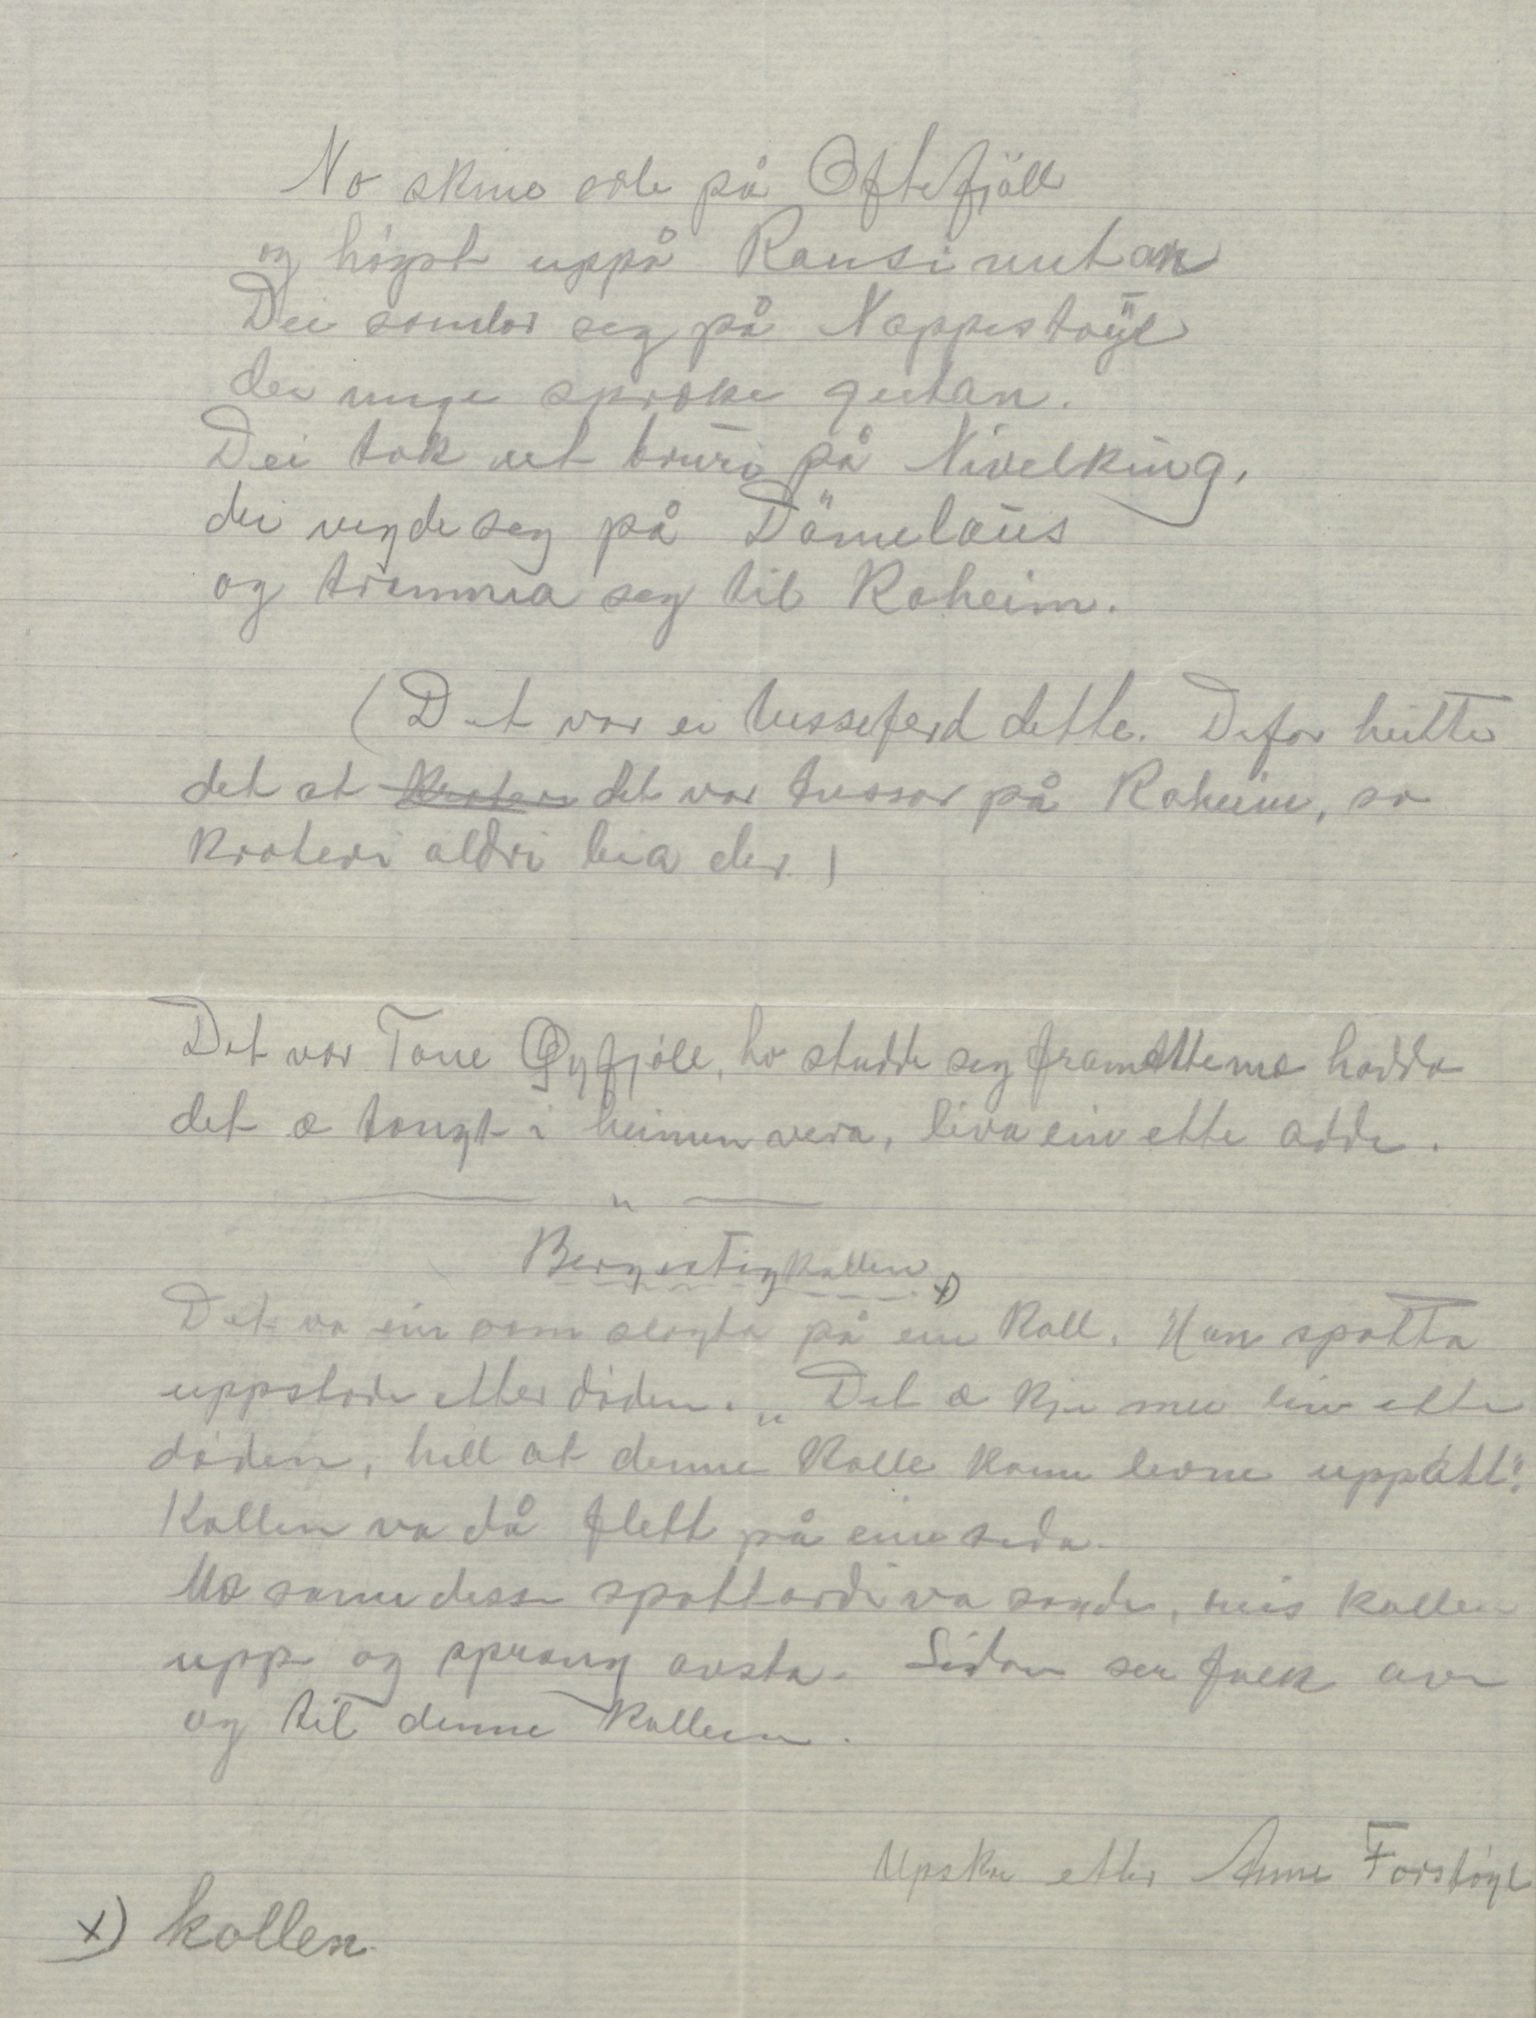 No skine sole på Oftefjöll
og högst uppå Rausinutan
Dei samlar seg på Nappestöyl
dei unge spræke gutan.
Dei tok ut bruri på Nivelking,
dei vigde seg på Dömelaus
og tremma seg til Roheim.
(Det var ei tusseferd dette. Defor heitte
det at det var tussar på Roheim, so
kroteri aldri leia der)
Det var Tone Öyfjöll, ho studde seg framettemæ hadda
det æ tungt i heimen vera, liva ein ette adde.
"
Bergestigkallen x)
Det va ein som slagta på ein Kall. Han spotta
uppstode etter döden. „Det æ kje mei liv ette
döden, hell at denne Kalle kann livne uppatt."
Kallen va då flett på eine sida.
Mæ same desse spottordi va sagde, reis kallen
upp og sprang avsta. Sidan ser folk av
og til denne Kallen.
Upskr etter Anne Forstöyl
x) kollen